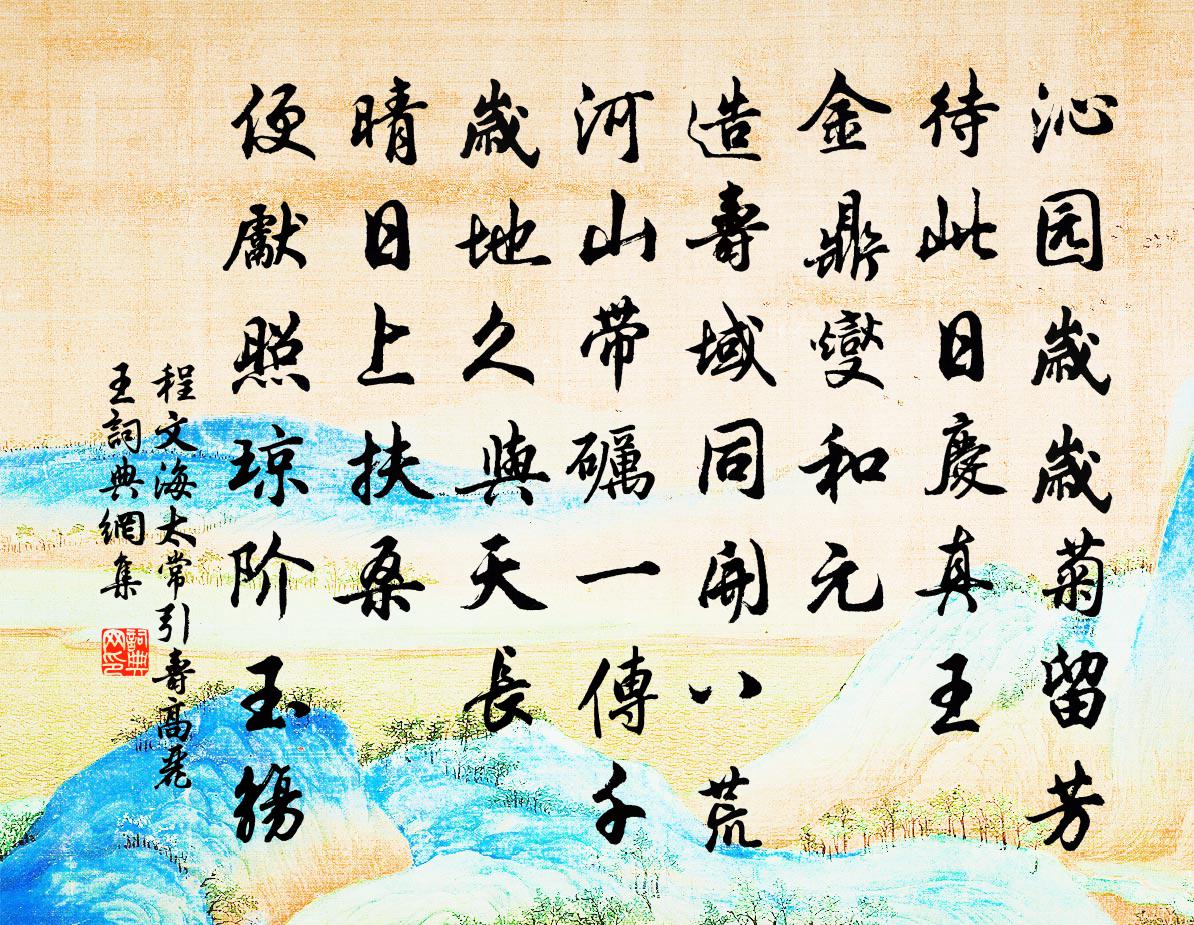 沁园歲歲菊留芳
待此日慶真王
金鼎燮和元
造壽域同開八荒
河山帶礪一傳千
歲地久與天長
晴日上扶桑
便獻照琼阶玉觴
程文海太常引壽高麗
王詞典網集
詞典网印